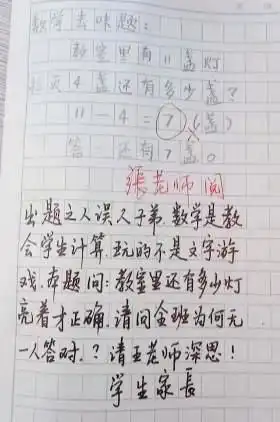 数学去味题：
教室里有11盏灯
关灭4盏还有多少盏？
11－4＝7（盏）
答：还有7盏。
張老师阅
出题之人误人子弟.数学是教
会学生计算.玩的不是文字游
戏.本题问：教室里还有多少灯
亮着才正确.请问全班为何无
一人答对.？请王老师深思！
学生家長